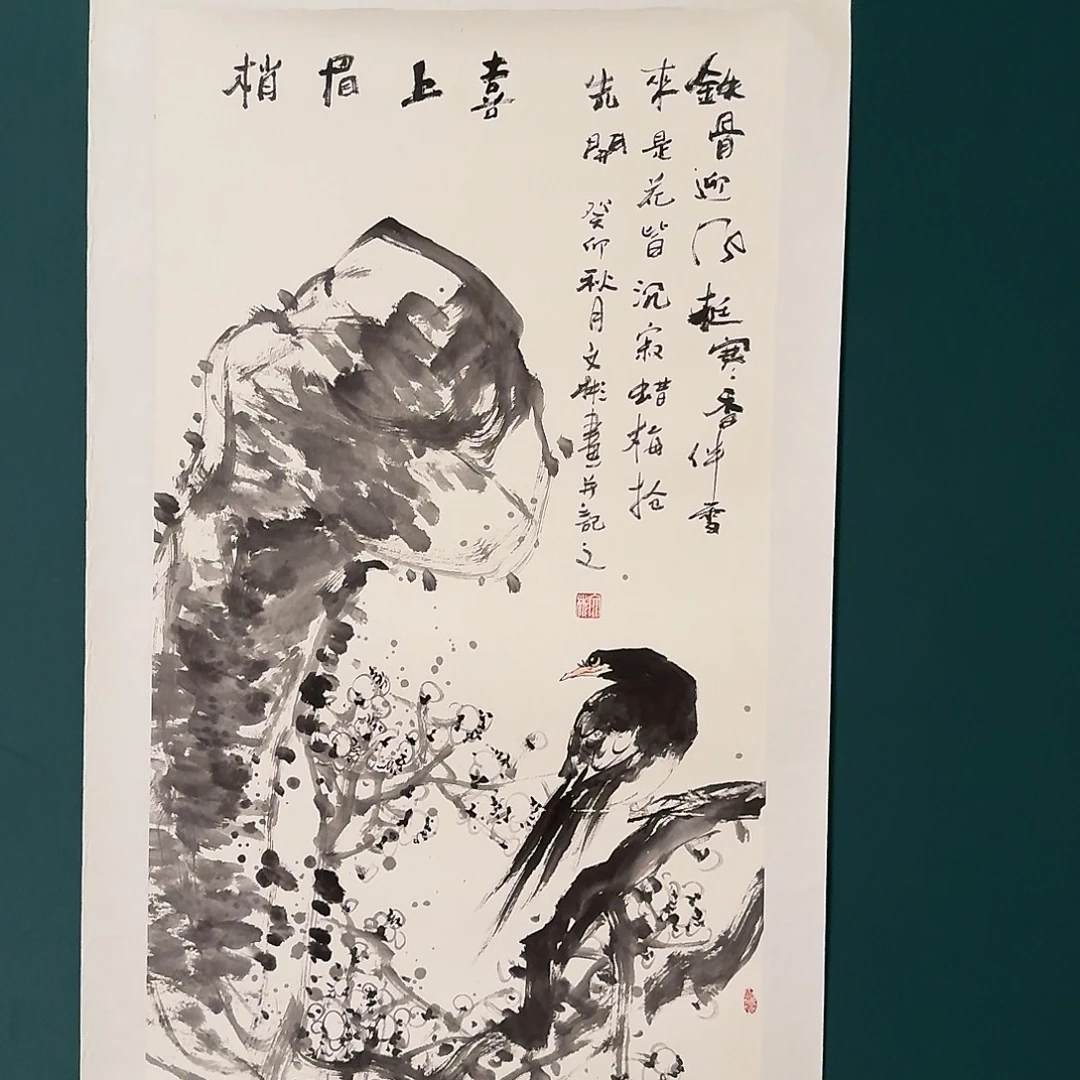 喜上眉梢
鉄骨迎风挺寒香伴雪
來是花皆沉寂蜡梅抢
先開 癸卯秋月文彬畫并記之